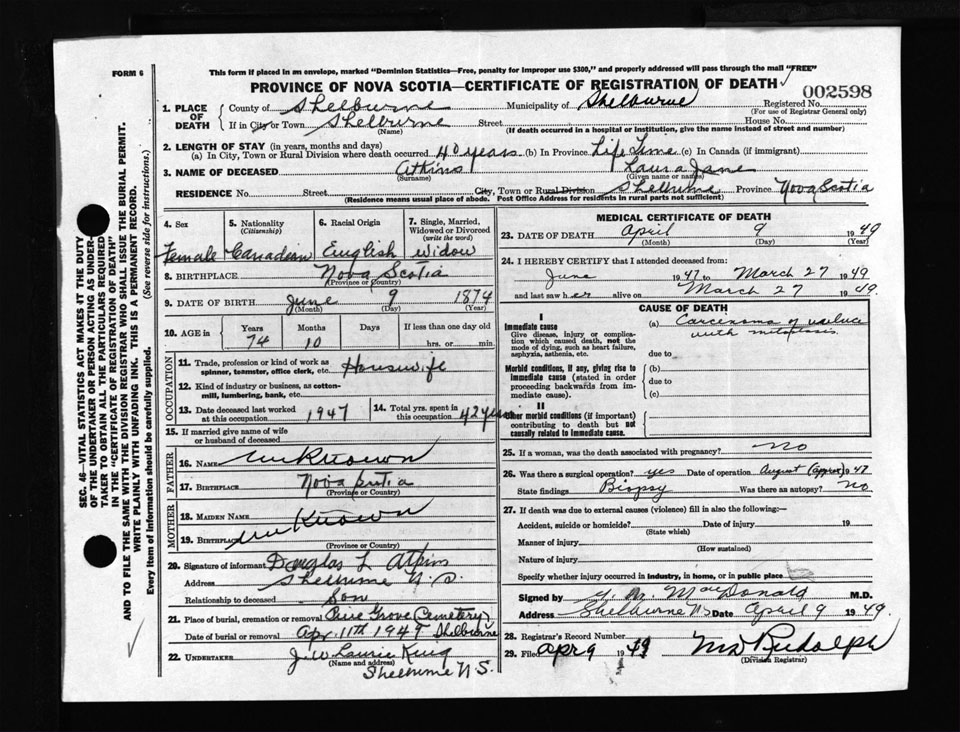 FORM 6
This form if placed in an envelope, marked "Dominion Statistics—Free, penalty for improper use $300," and properly addressed will pass through the mail "FREE"
PROVINCE OF NOVA SCOTIA—CERTIFICATE OF REGISTRATION OF DEATH
002598
1. PLACE OF DEATH
County of Shelburne Municipality of Shelburne Registered No.
(For use of Registrar General only)
If in City or Town Shelburne Street House No.
(Name) (If death occurred in a hospital or institution, give the name instead of street and number)
2. LENGTH OF STAY (in years, months and days)
(a) In City, Town or Rural Division where death occurred 40 years (b) In Province Life Time (c) In Canada (if immigrant)
3. NAME OF DECEASED Atkins Laura Jane
(Surname) (Given name or names)
RESIDENCE No. Street City, Town or Rural Division Shelburne Province Nova Scotia
(Residence means usual place of abode. Post Office Address for residents in rural parts not sufficient)
4. Sex 5. Nationality (Citizenship) 6. Racial Origin 7. Single, Married, Widowed or Divorced (write the word)
Female Canadian English widow
8. BIRTHPLACE Nova Scotia
(Province or Country)
9. DATE OF BIRTH June 9 1874
(Month) (Day) (Year)
10. AGE in Years Months Days If less than one day old
74 10 hrs. or min.
OCCUPATION
11. Trade, profession or kind of work as spinner, teamster, office clerk, etc. Housewife
12. Kind of industry or business, as cotton-mill, lumbering, bank, etc.
13. Date deceased last worked at this occupation 1947 14. Total yrs. spent in this occupation 42 years
15. If married give name of wife or husband of deceased
FATHER
16. NAME unknown
17. BIRTHPLACE Nova Scotia
(Province or Country)
MOTHER
18. MAIDEN NAME unknown
19. BIRTHPLACE
(Province or Country)
20. Signature of informant Douglas L Atkins
Address Shelburne N.S.
Relationship to deceased Son
21. Place of burial, cremation or removal Pine Grove (Cemetery)
Date of burial or removal Apr. 11th 1949 Shelburne
22. UNDERTAKER J. W. Laurie King
(Name and address)
Shelburne N S.
MEDICAL CERTIFICATE OF DEATH
23. DATE OF DEATH April 9 1949
(Month) (Day) (Year)
24. I HEREBY CERTIFY that I attended deceased from:
June 1947 to March 27 1949
and last saw her alive on March 27 1949.
CAUSE OF DEATH
I
Immediate cause (a) Carcinoma of vulva
Give disease, injury or complication which caused death, not the mode of dying, such as heart failure, asphyxia, asthenia, etc.
with
due to
Morbid conditions, if any, giving rise to immediate cause (stated in order proceeding backwards from immediate cause).
(b)
due to
(c)
II
Other morbid conditions (if important) contributing to death but not causally related to immediate cause.
25. If a woman, was the death associated with pregnancy? no
26. Was there a surgical operation? yes Date of operation August (approx) 1947
State findings Biopsy Was there an autopsy? no
27. If death was due to external causes (violence) fill in also the following:—
Accident, suicide or homicide? Date of injury 19
(State which)
Manner of injury
(How sustained)
Nature of injury
Specify whether injury occurred in industry, in home, or in public place
Signed by MacDonald M.D.
Address Shelburne NS Date April 9 1949.
28. Registrar's Record Number
29. Filed Apr 9 1949 Rudolph
(Division Registrar)
SEC. 46—VITAL STATISTICS ACT MAKES IT THE DUTY
OF THE UNDERTAKER OR PERSON ACTING AS UNDER-
TAKER TO OBTAIN ALL THE PARTICULARS REQUIRED
IN THE "CERTIFICATE OF REGISTRATION OF DEATH"
AND TO FILE THE SAME WITH THE DIVISION REGISTRAR WHO SHALL ISSUE THE BURIAL PERMIT.
WRITE PLAINLY WITH UNFADING INK. THIS IS A PERMANENT RECORD.
Every item of Information should be carefully supplied. (See reverse side for instructions.)